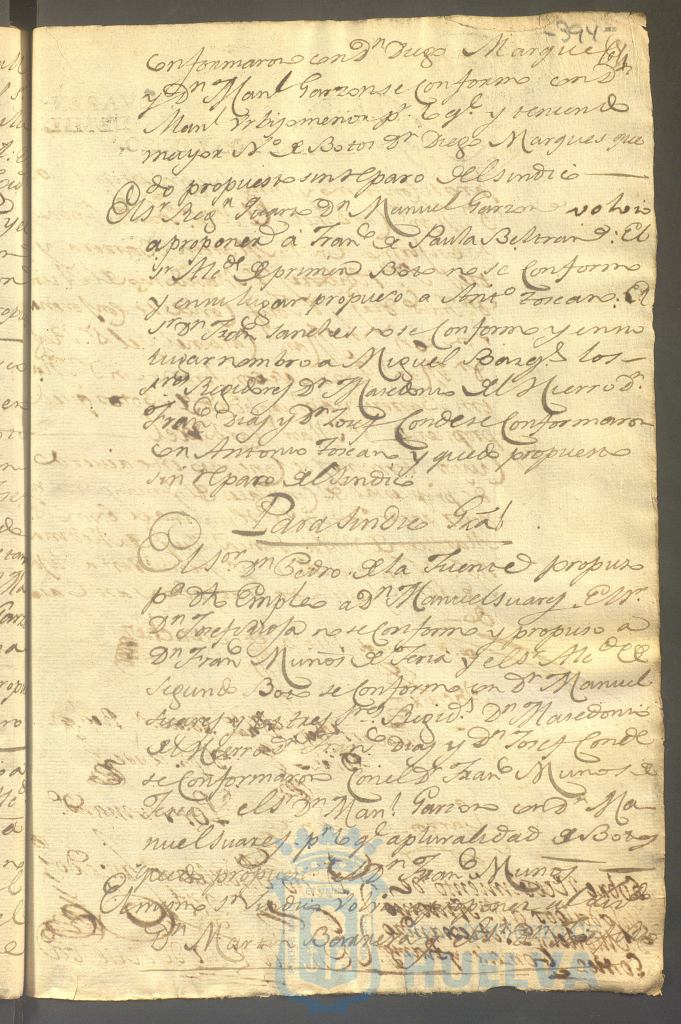 -394-
conformaron con Dn Diego Marques
y Dn Manl Garzon se conformo con Dn
Manl Urbijo menor pr lo ql y teniendo
mayor No de Botos Dn Diego Marques que
do propuesto sin reparo del sindico
El sr Regr quarto Dn Manuel Garzon volvio
a proponer á Franco de Paula Beltran. El
sr Alcde de primer Boto no se conformo
y en su lugar propuso a Anto toscano. El
sr Dn Franco sanches no se conformo y en su
lugar nombro a Miguel los
sres Regidores Dn Masedonio del Hierro Dn
Franco Dias y Dn Josef Conde se conformaron
en Antonio toscano y quedo propuesto
sin reparo del sindico
Para sindico Gral
El sor Dn Pedro de la Fuente propuso
pa dho Empleo a Dn Manuel suares. El sr
Dn Josef no se conformo y propuso a
Dn Franco Muños de Feria y el sr Alcde de
segundo Boto se conformo con Dn Manuel
suares y los tres sres Regids Dn Masedonio
del Hierro Dn Franco Dias y Dn Josef Conde
se conformaron con el Dn Franco Munos de
Feria el sr Dn Manl Garzon con Dn Ma
nuel suares pr lo ql a pluralidad de Botos
quedo propuesto el Dn Franco Munos
El mismo sr volvio a proponer al
Dn Martin
HUELVA